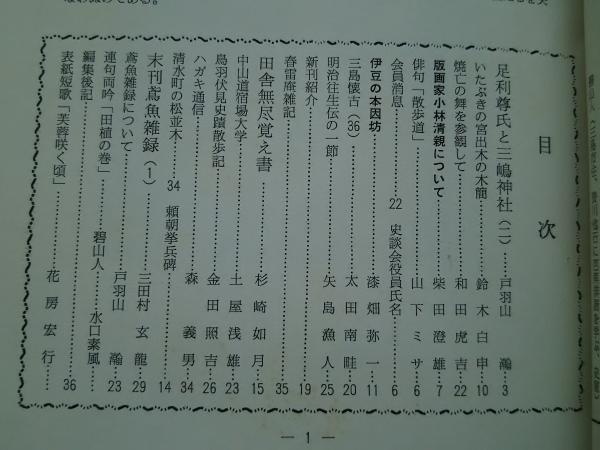 目次
足利尊氏と三嶋神社(二)……戸羽山 瀚…3
いたぶきの宮出木の木簡……鈴木白申…10
焼亡の舞を参観して……和田虎吉…22
版画家小林清親について……柴田澄雄…7
俳句「散歩道」……山下ミサ…6
会員消息……22 史談会役員氏名……6
伊豆の本因坊……漆畑弥一…11
三島懐古(36)……太田南畦…20
明治往生伝の一節……矢島漁人…25
新刊紹介……19
春雷庵雑記……35
田舎無尽覚え書……杉崎如月…15
中山道宿場大学……土屋浅雄…23
鳥羽伏見史蹟散歩記……金田照吉…26
ハガキ通信……森 義男…34
清水町の松並木……34 頼朝挙兵碑……14
末刊鳶魚雑録(1)……三田村玄龍…29
鳶魚雑録について……戸羽山 瀚…23
連句両吟「田植の巻」……碧山人……水口素風
編集後記……36
表紙短歌「芙蓉咲く頃」……花房宏行……
— 1 —